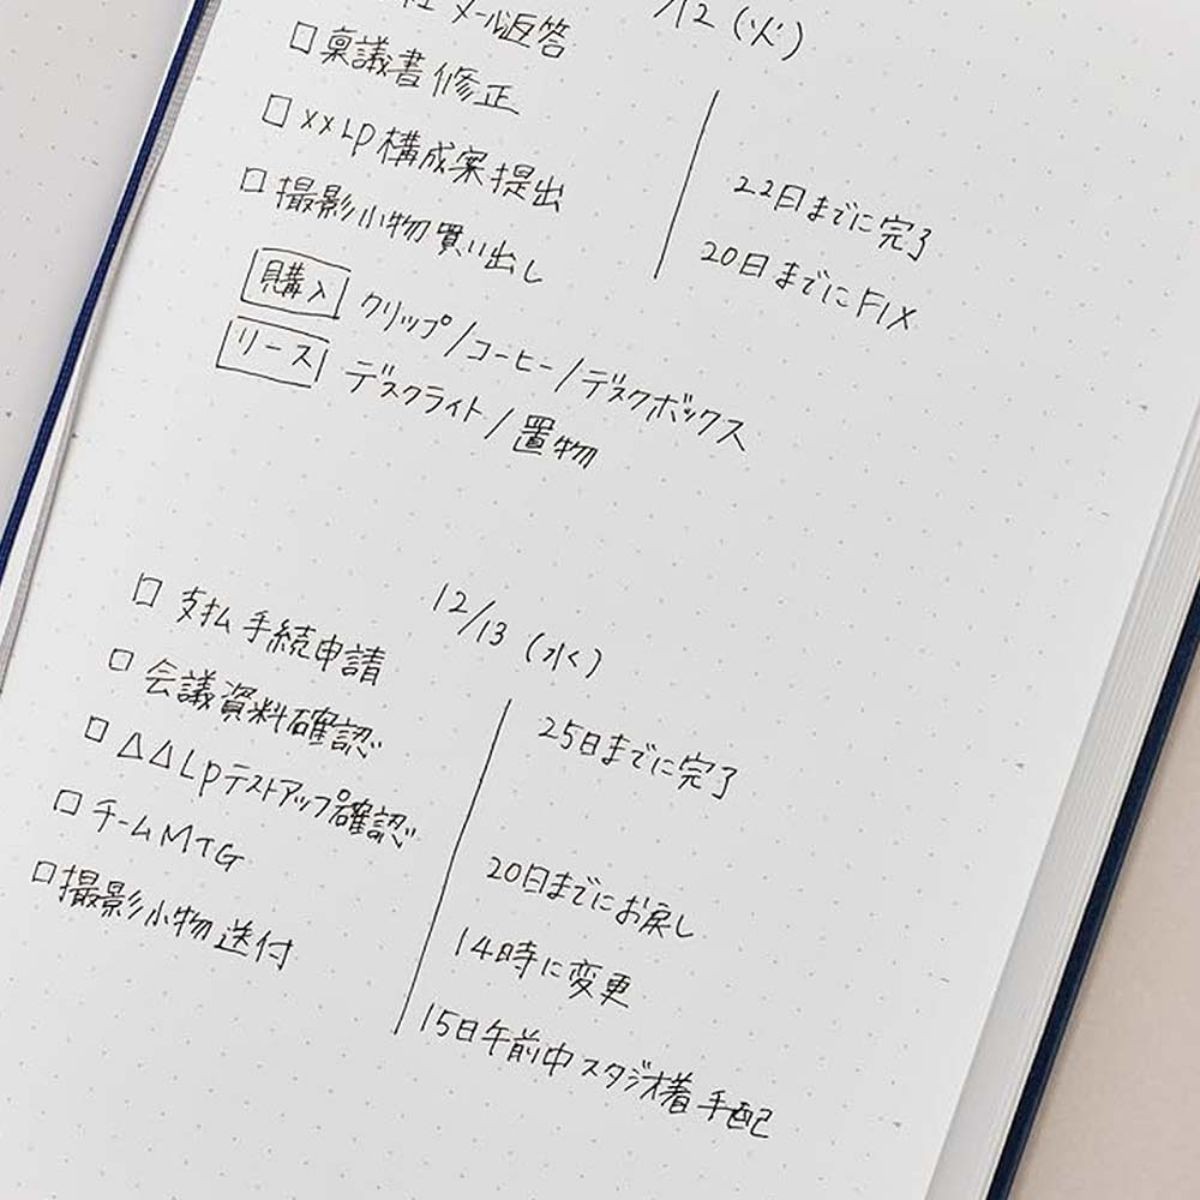 /12(火)
メール返答
□ 稟議書修正
□ ××LP構成案提出 22日までに完了
□ 撮影小物買い出し 20日までにFIX
購入 クリップ/コーヒー/デスクボックス
リース デスクライト/置物
12/13(水)
□ 支払手続申請
□ 会議資料確認 25日までに完了
□ △△LPテストアップ確認
□ チームMTG 20日までにお戻し
□ 撮影小物送付 14時に変更
15日午前中スタジオ着手配